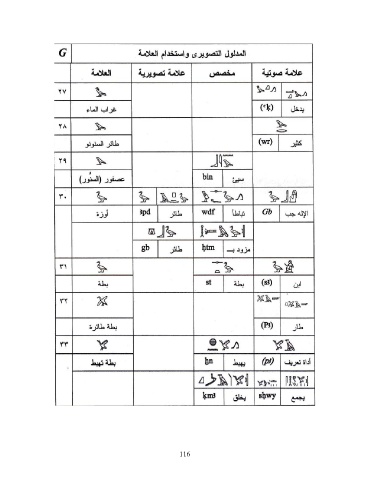 المدلول التصويرى واستخدام العلامة G
علامة صوتية مخصص علامة تصويرية العلامة
٢٧
يدخل (ʿḳ) غراب الماء
٢٨
كثير (wr) طائر السنونو
٢٩
سيئ bin عصفور (السنُور)
٣٠
الإله جب Gb تباطأ wdf طائر ȝpd أوزة
مزود بـــ ḥtm طائر gb
٣١
ابن (sȝ) بطة st بطة
٣٢
طار (Pȝ) بطة طائرة
٣٣
أداة تعريف (pȝ) يهبط ḫn بطة تهبط
يجمع sḥwy يخلق ḳmȝ
116